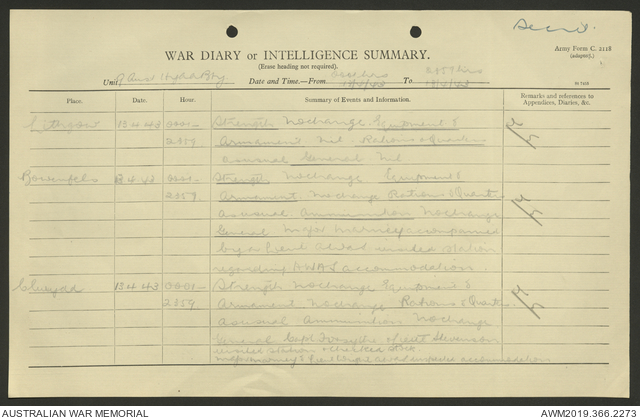 Secret.
Army Form C. 2118
(adapted).
WAR DIARY or INTELLIGENCE SUMMARY.
(Erase heading not required).
Unit Aust Hy Bty Date and Time—From 0001 hrs 13/4/43 To 2359 hrs 13/4/43
Place. Date. Hour. Summary of Events and Information. Remarks and references to Appendices, Diaries, &c.
Lithgow 13 4 43 0001- Strength No change. Equipment &
2359 Armament Nil. Rations & Quarters
as usual General Nil
Bowenfels 13.4.43 0001- Strength No change Equipment &
2359 Armament No change Rations & Quarters
as usual Ammunition No change
General Major accompanied
by a Lieut AWAS visited station
regarding AWAS accommodation.
Clwydd 13 4 43 0001- Strength No change Equipment &
2359. Armament No change Rations & Quarters
as usual Ammunition No change
General Capt Forsythe & Lieut Stevenson
visited station & checked
Major & Lieut AWAS accommodation
AUSTRALIAN WAR MEMORIAL AWM2019.366.2273